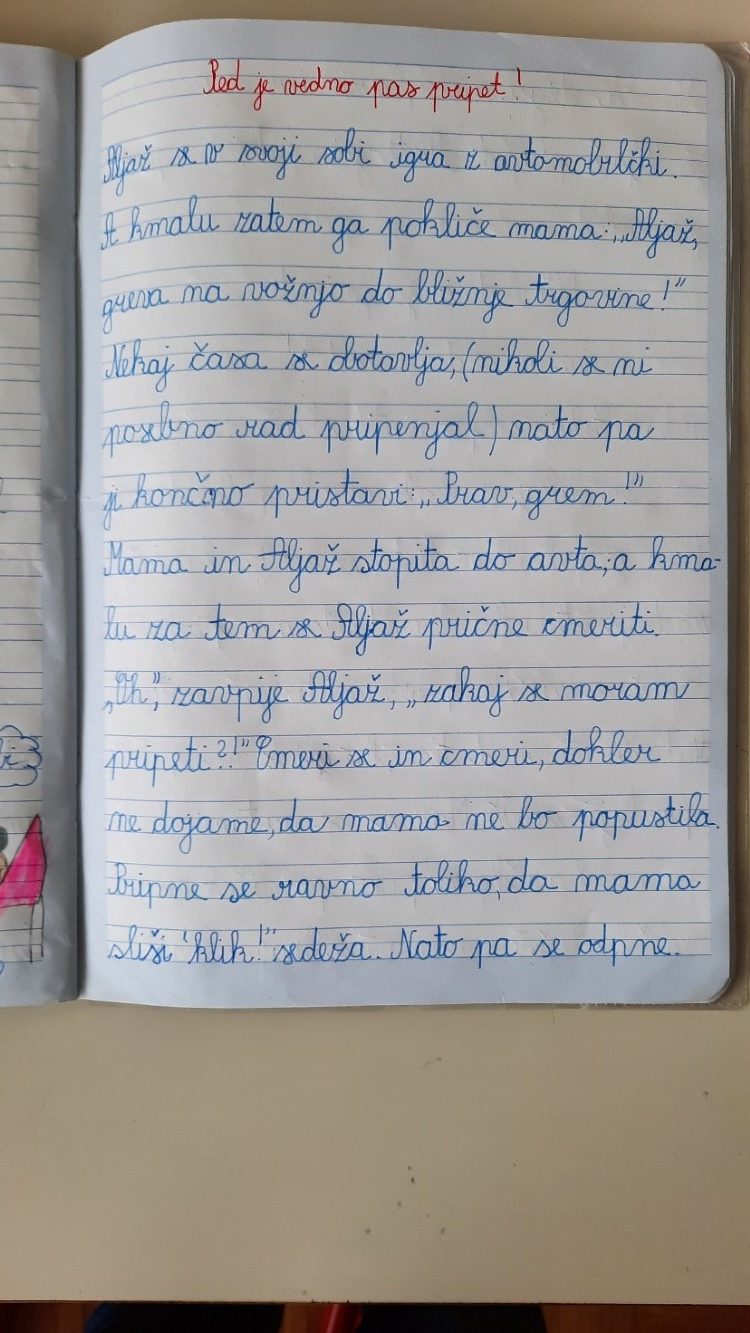 Red je vedno pas pripet!
Aljaž se v svoji sobi igra z avtomobilčki.
A kmalu zatem ga pokliče mama: „Aljaž,
greva na vožnjo do bližnje trgovine!"
Nekaj časa se obotavlja, (nikoli se ni
posebno rad pripenjal) nato pa
ji končno pristavi: „Prav, grem!"
Mama in Aljaž stopita do avta, a kma-
lu za tem se Aljaž prične cmeriti.
„Oh", zavpije Aljaž, „zakaj se moram
pripeti?!" Cmeri se in cmeri, dokler
ne dojame, da mama ne bo popustila.
Pripne se ravno toliko, da mama
sliši 'klik!" sedeža. Nato pa se odpne.